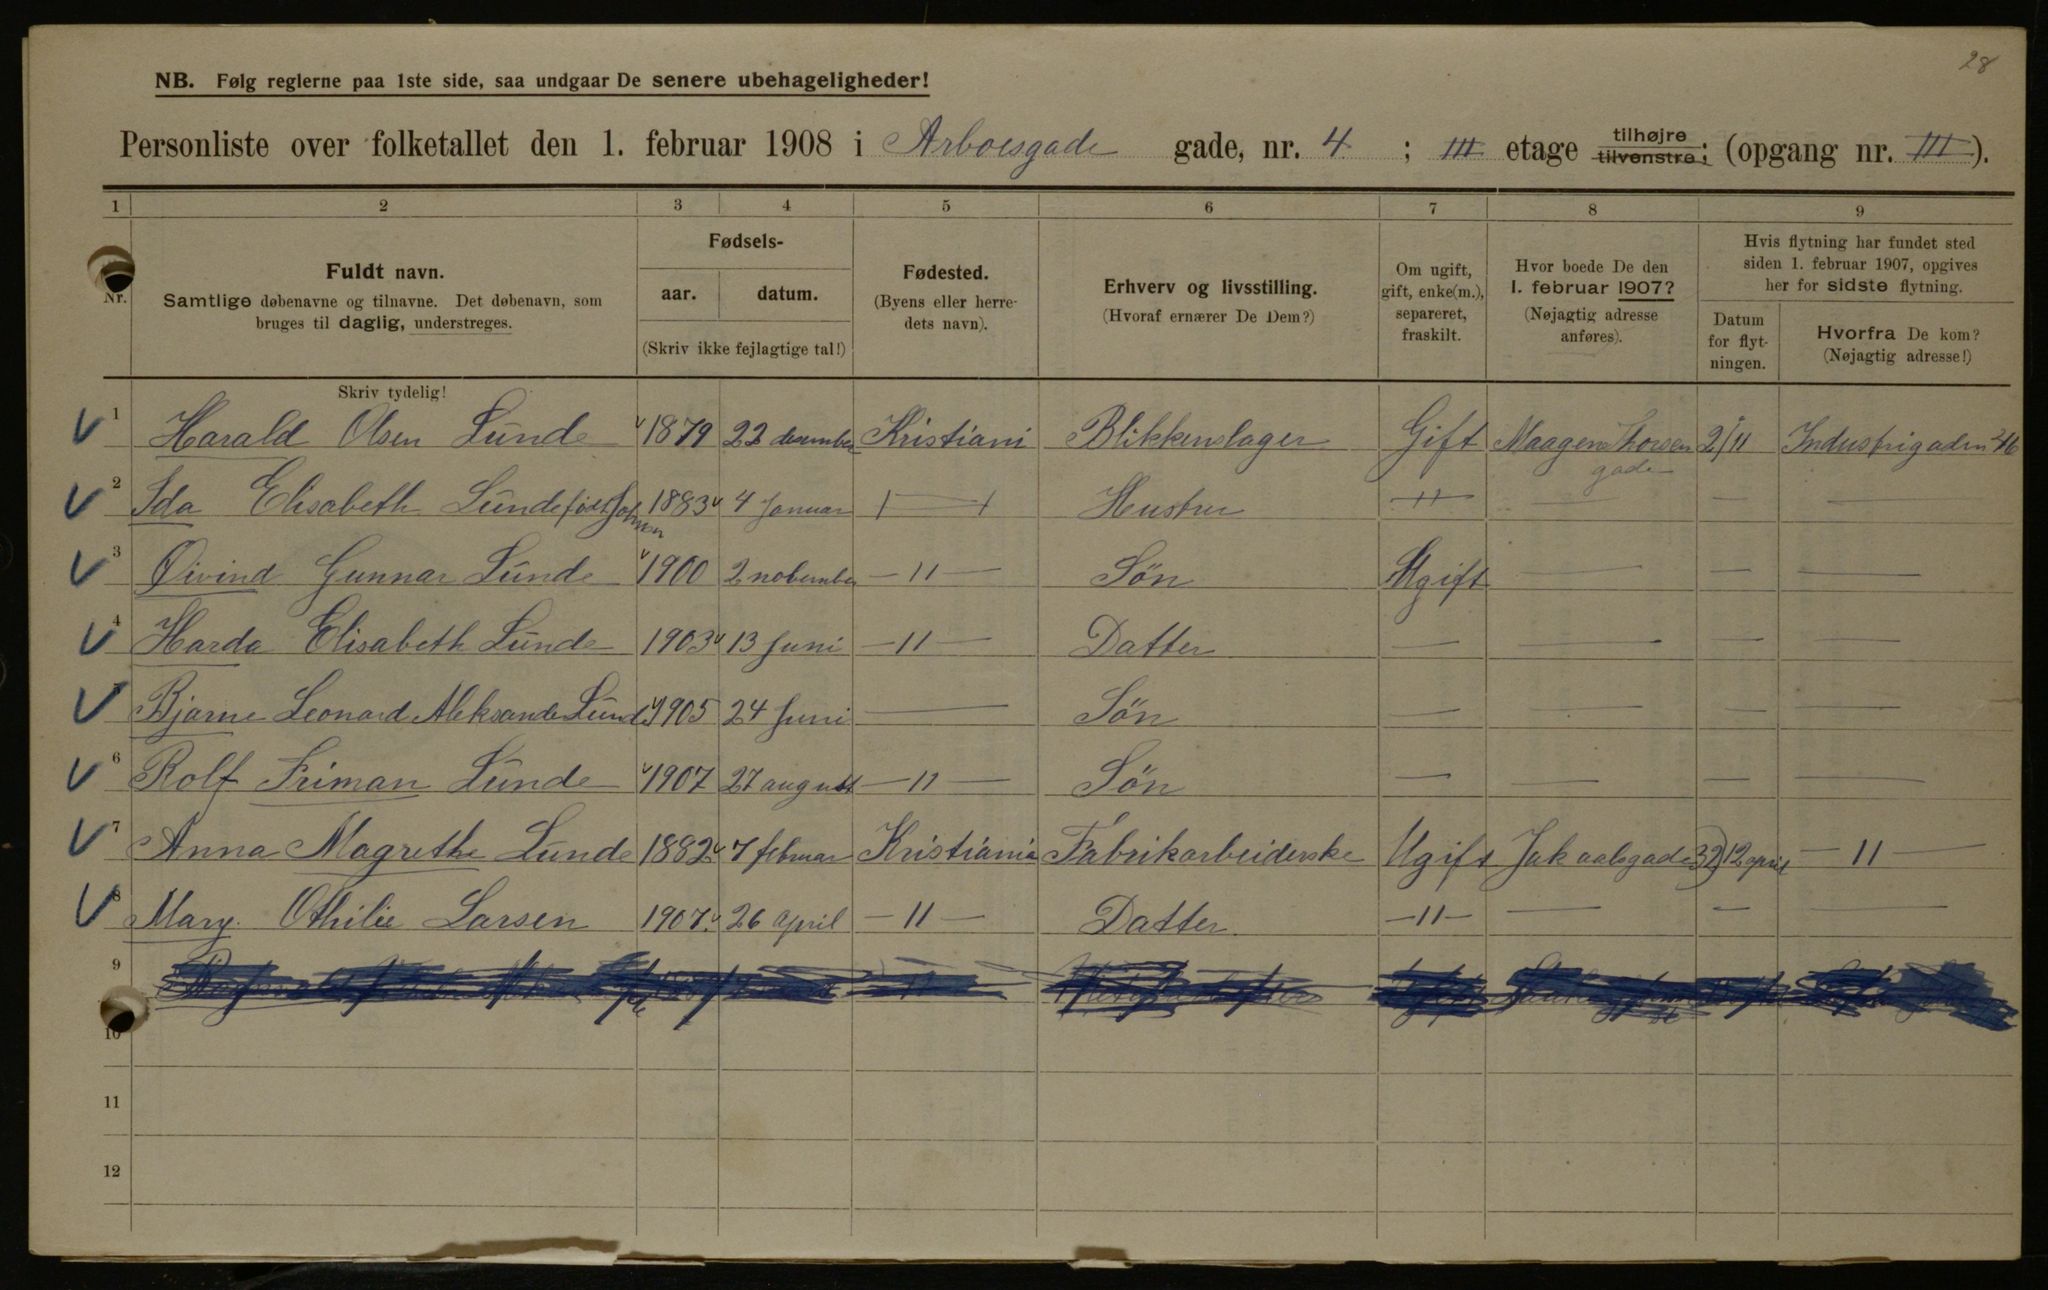 28
NB. Følg reglerne paa 1ste side, saa undgaar De senere ubehageligheder!
Personliste over folketallet den 1. februar 1908 i Arboesgade gade, nr. 4 ; III etage tilhøjre tilvenstre; (opgang nr. III).
1 2 3 4 5 6 7 8 9
Nr.
Fuldt navn.
Samtlige døbenavne og tilnavne. Det døbenavn, som
bruges til daglig, understreges.
Skriv tydelig!
Fødsels-
aar. datum.
(Skriv ikke fejlagtige tal!)
Fødested.
(Byens eller herre-
dets navn).
Erhverv og livsstilling.
(Hvoraf ernærer De Dem?)
Om ugift,
gift, enke(m.),
separeret,
fraskilt.
Hvor boede De den
1. februar 1907?
(Nøjagtig adresse
anføres).
Hvis flytning har fundet sted
siden 1. februar 1907, opgives
her for sidste flytning.
Datum
for flyt-
ningen.
Hvorfra De kom?
(Nøjagtig adresse!)
1 Harald Olsen Lunde 1879 22 desember Kristiani Blikkenslager Gift Maagens Thorsen gade 2/11 Industrigaden 46
2 Ida Elisabeth Lunde født 1883 4 Januar Hustru "
3 Øivind Gunnar Lunde 1900 2 nobember — " — Søn Ugift — — —
4 Harda Elisabeth Lunde 1903 13 Juni — " — Datter — — — —
Bjarne Leonard Aleksander Lunde 1905 24 Juni — Søn — — — —
6 Rolf Friman Lunde 1907 27 august — " — Søn — — — —
7 Anna Magrethe Lunde 1882 7 februar Kristiania Fabrikarbeiderske Ugift Jak aalsgade 32 12 april — " —
8 Mary Othilie Larsen 1907. 26 April — " — Datter. — " — — — —
9
10
11
12